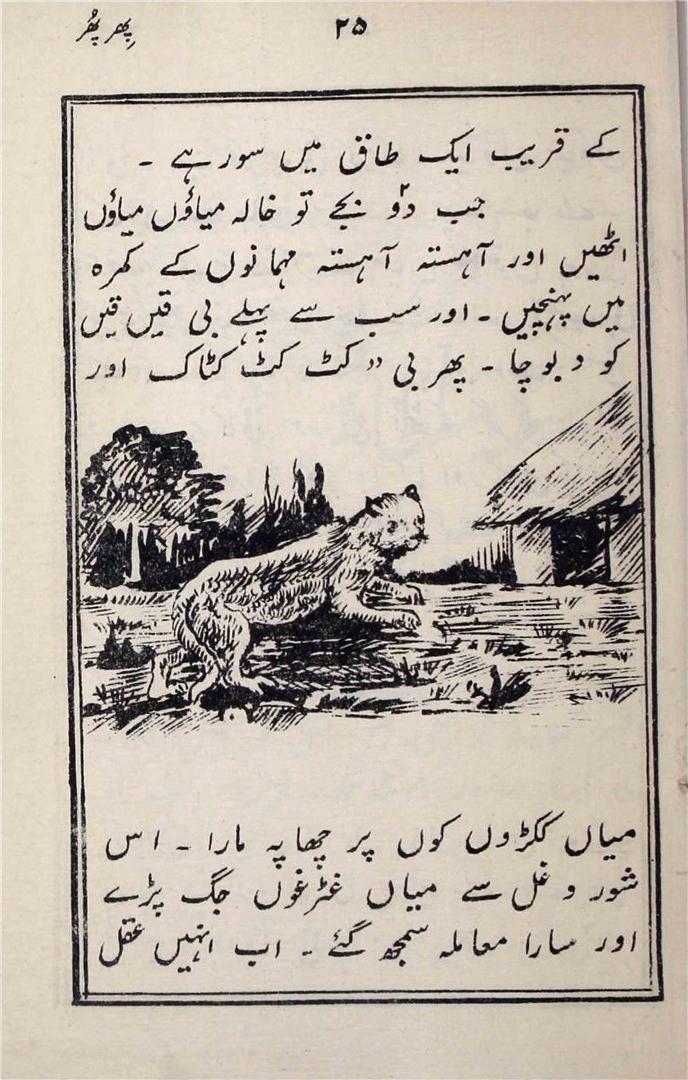 ۲۵
پِھر پُھر
کے قریب ایک طاق میں سو رہے ۔
جب دوؔ بجے تو خالہ میاؤں میاؤں
اٹھیں اور آہستہ آہستہ مہمانوں کے کمرہ
میں پہنچیں ۔ اور سب سے پہلے بی قیں قیں
کو دبوچا ۔ پھر بی " کٹ کٹ کٹاک اور
میاں ککڑوں کوں پر چھاپہ مارا ۔ اس
شور و غل سے میاں غٹرغوں جگ پڑے
اور سارا معاملہ سمجھ گئے ۔ اب انہیں عقل